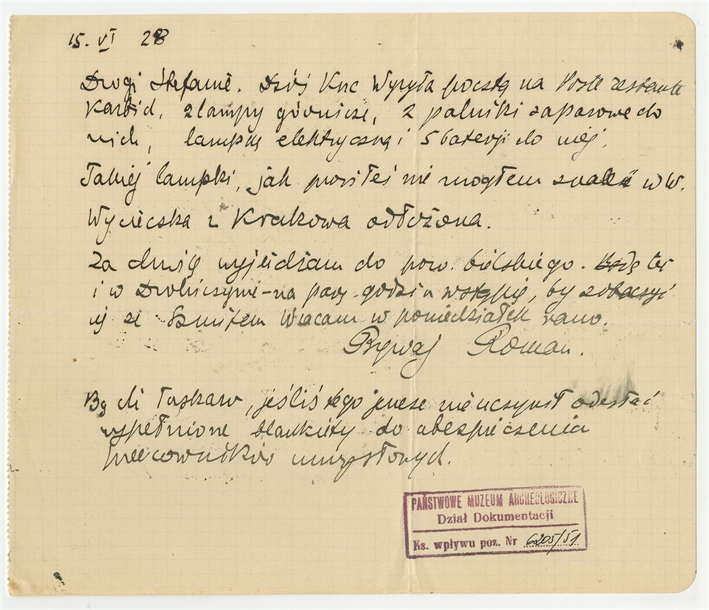 15. VI 28
Drogi Stefanie. Dziś Knc wysyła pocztą na Poste restante
karbid, 2 lampy górnicze, 2 palniki zapasowe do
nich, lampkę elektryczną i 5 bateryj do niej.
Takiej lampki, jak prosiłeś nie mogłem znaleźć w W.
Wycieczka z Krakowa odłożona.
Za chwilę wyjeżdżam do pow. bielskiego. Będę też
i w Drohiczynie – na parę godzin wstąpię, by zobaczyć
się ze Szmitem Wracam w poniedziałek rano.
Bywaj Roman.
Bą dź łaskaw, jeśliś tego jeszcze nie uczynił odesłać
wypełnione blankiety do ubezpieczenia
pracowników umysłowych.
PAŃSTWOWE MUZEUM ARCHEOLOGICZNE
Dział Dokumentacji
Ks. wpływu poz. Nr 6205/51